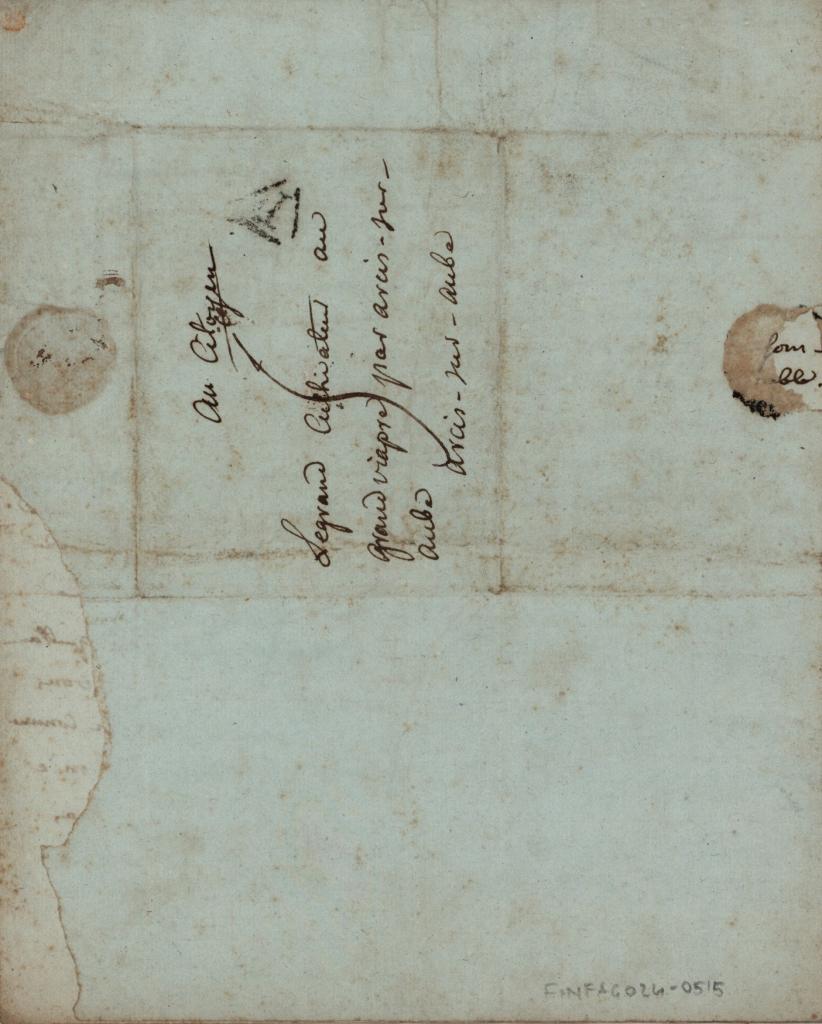 Au Citoyen
Legrand Cultivateur au
grand viapre par arcis-sur-
aube
Arcis-sur-aube
A
som-
ble.
FINFAG024-0515